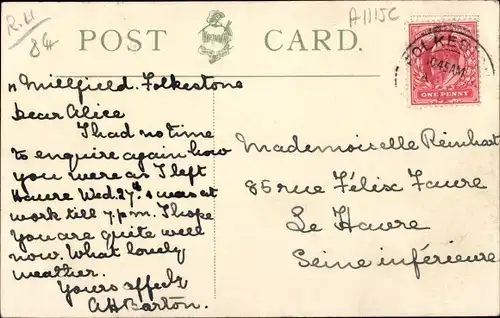 R.H
84
A1115C
POST CARD.
FOLKESTO
45AM
ONE PENNY
11 Millfield. Folkestone
Dear Alice
I had no time
to enquire again how
you were as I left
Havre Wed. 27th & was at
work till 7 p.m. I hope
you are quite well
now. What lovely
weather.
Yours affecly
AH Barton.
Mademoiselle Reinhart
85 rue Félix Faure
Le Havre
Seine inférieure